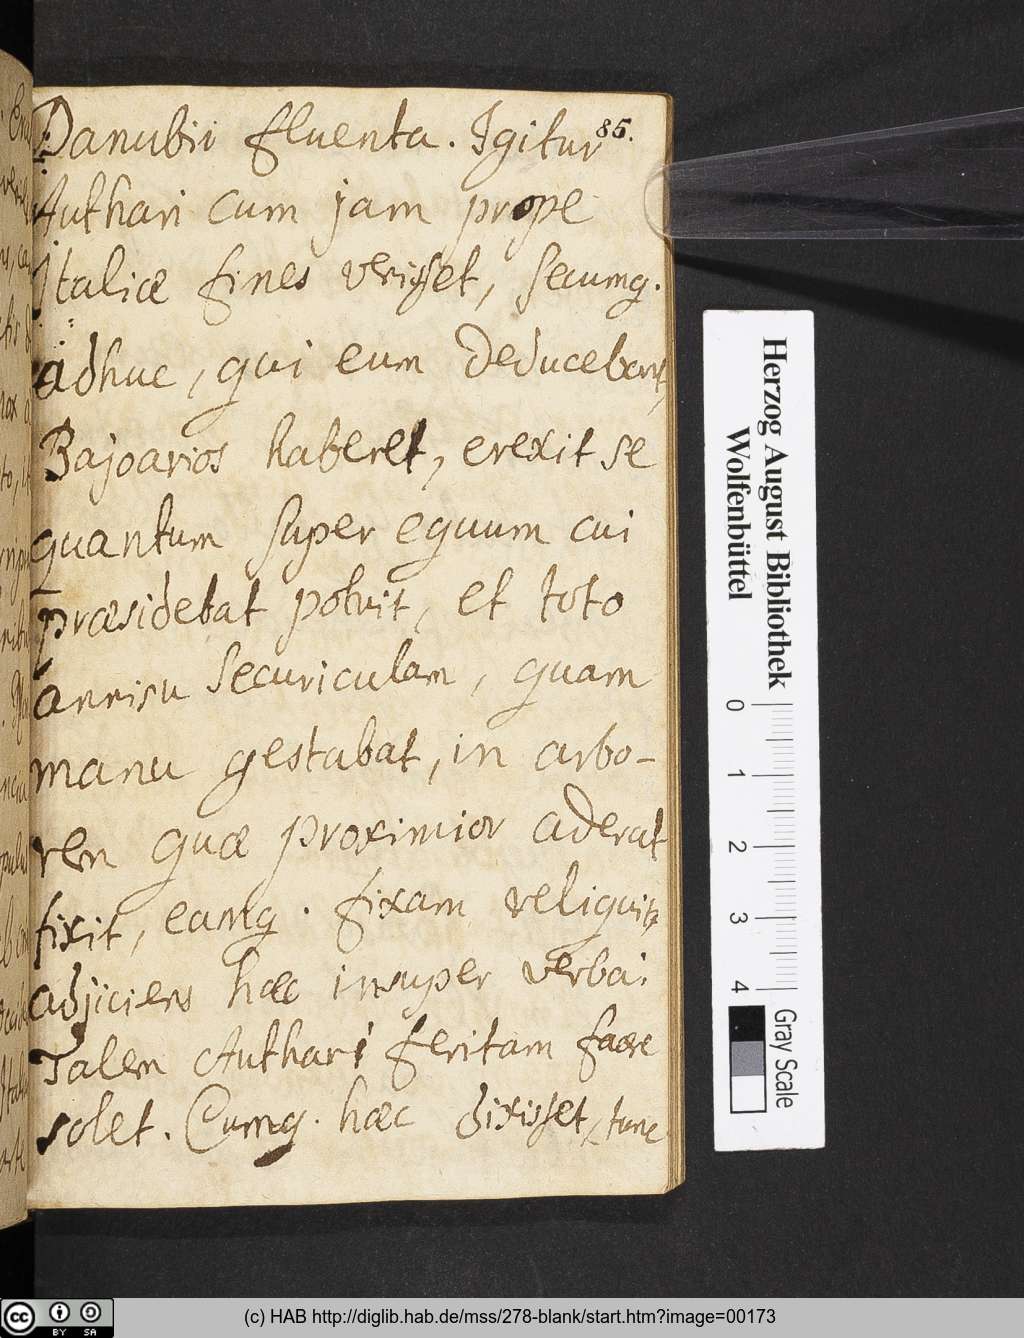 85.
Danubii fluenta. Igitur
Authari cum jam prope
Italiæ fines venisset, secumq.
adhuc, qui eum deducebant,
Bajoarios haberet, erexit se
quantum super equum cui
præsidebat potuit, et toto
annisu securiculam, quam
manu gestabat, in arbo-
rem quæ proximior aderat
fixit, eamq. fixam reliquit
adjiciens hæc insuper verba:
Talem Authari feritam facere
solet. Cumq. hæc dixisset, tunc
Herzog August Bibliothek
Wolfenbüttel
0 1 2 3 4
Gray Scale
cc BY SA
(c) HAB http://diglib.hab.de/mss/278-blank/start.htm?image=00173